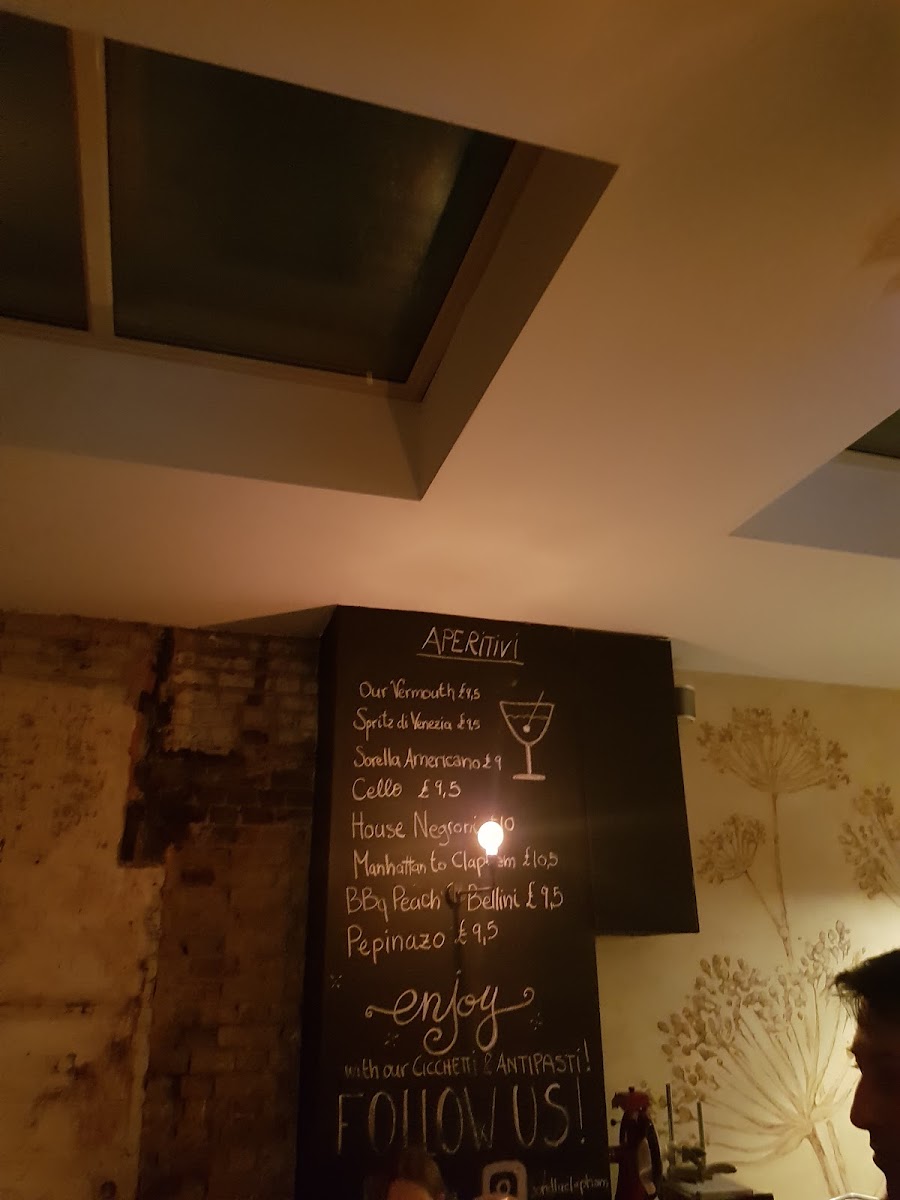 APERITIVI
Our Vermouth £9,5
Spritz di Venezia £9.5
Sorella Americano £9
Cello £9,5
House Negroni £10
Manhattan to Clapham £10,5
BBq Peach Bellini £9,5
Pepinazo £9,5
enjoy
with our CICCHETTI & ANTIPASTI!
FOLLOW US!